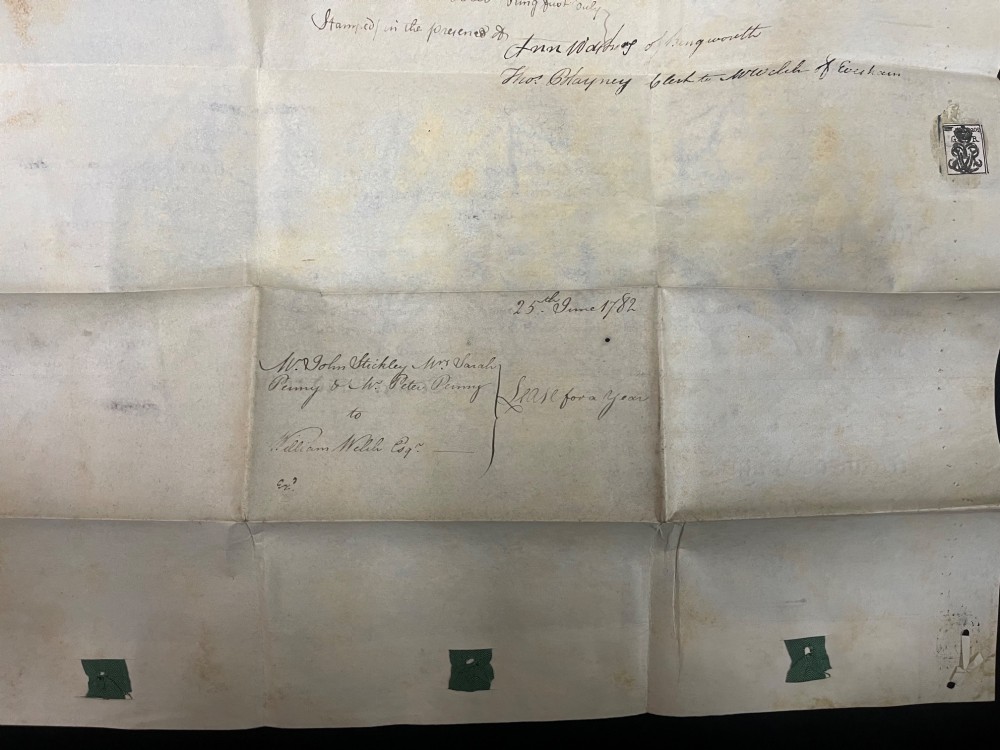 being first duly
Stamped) in the presence of
Ann of
Thos. Blayney Clerk to Mr Welch of Evesham
G R
25th June 1782
Mr. John Stickley Mrs Sarah
Penny & Mr. Peter Penny
to
William Welch Esqr.
Lease for a Year
Exd